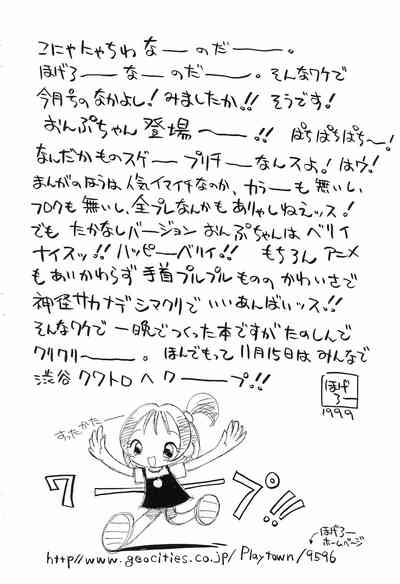 こにゃにゃちわ なーのだーー。
ほげろーー なーのだーー。そんなワケで
今月号のなかよし!みましたか!!そうです!
おんぷちゃん 登場〜ー!! ぱちぱちぱち〜!
なんだかものスゲープリチーなんスよ!はウ!
まんがのほうは人気イマイチなのか、カラーも無いし
フロクも無いし、全プレなんかもありゃしねえッス!
でも たかなしバージョン おんぷちゃんは ベリイ
ナイスッ!! ハッピーベリイ!! もちろん アニメ
も あいかわらず 手首プルプルものの かわいさで
神径サカナデシマクリで いいあんばいッス!!
そんなワケで 一晩でつくった本ですが たのしんで
クリクリーー。 ほんでもって 11月15日は みんなで
渋谷 クワトロ へ ワーープ!!
ほげ
ろー
1999
すったかたー
ワープ!!
ほげろー
ホームページ
http://www.geocities.co.jp/Playtown/9596